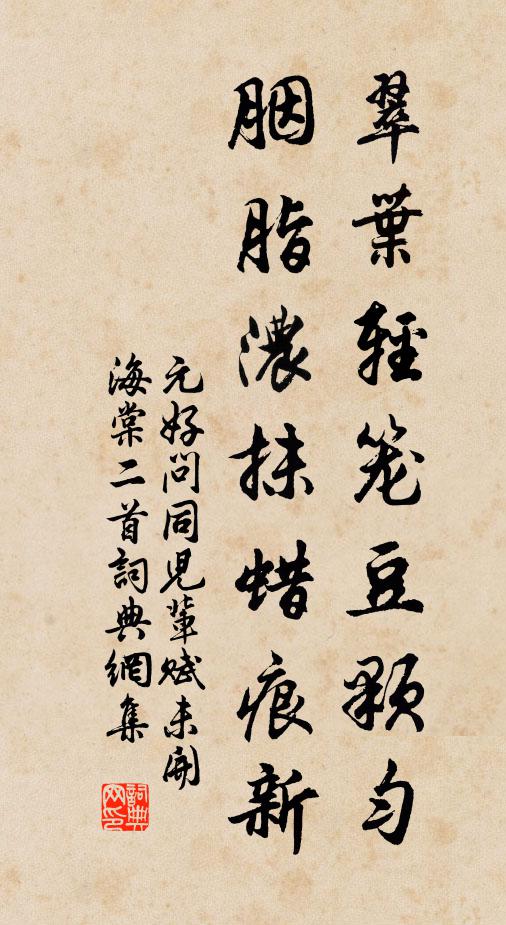 翠葉輕笼豆颗匀
胭脂濃抹蜡痕新
元好问同児輩賦未開
海棠二首詞典網集
詞典
网印